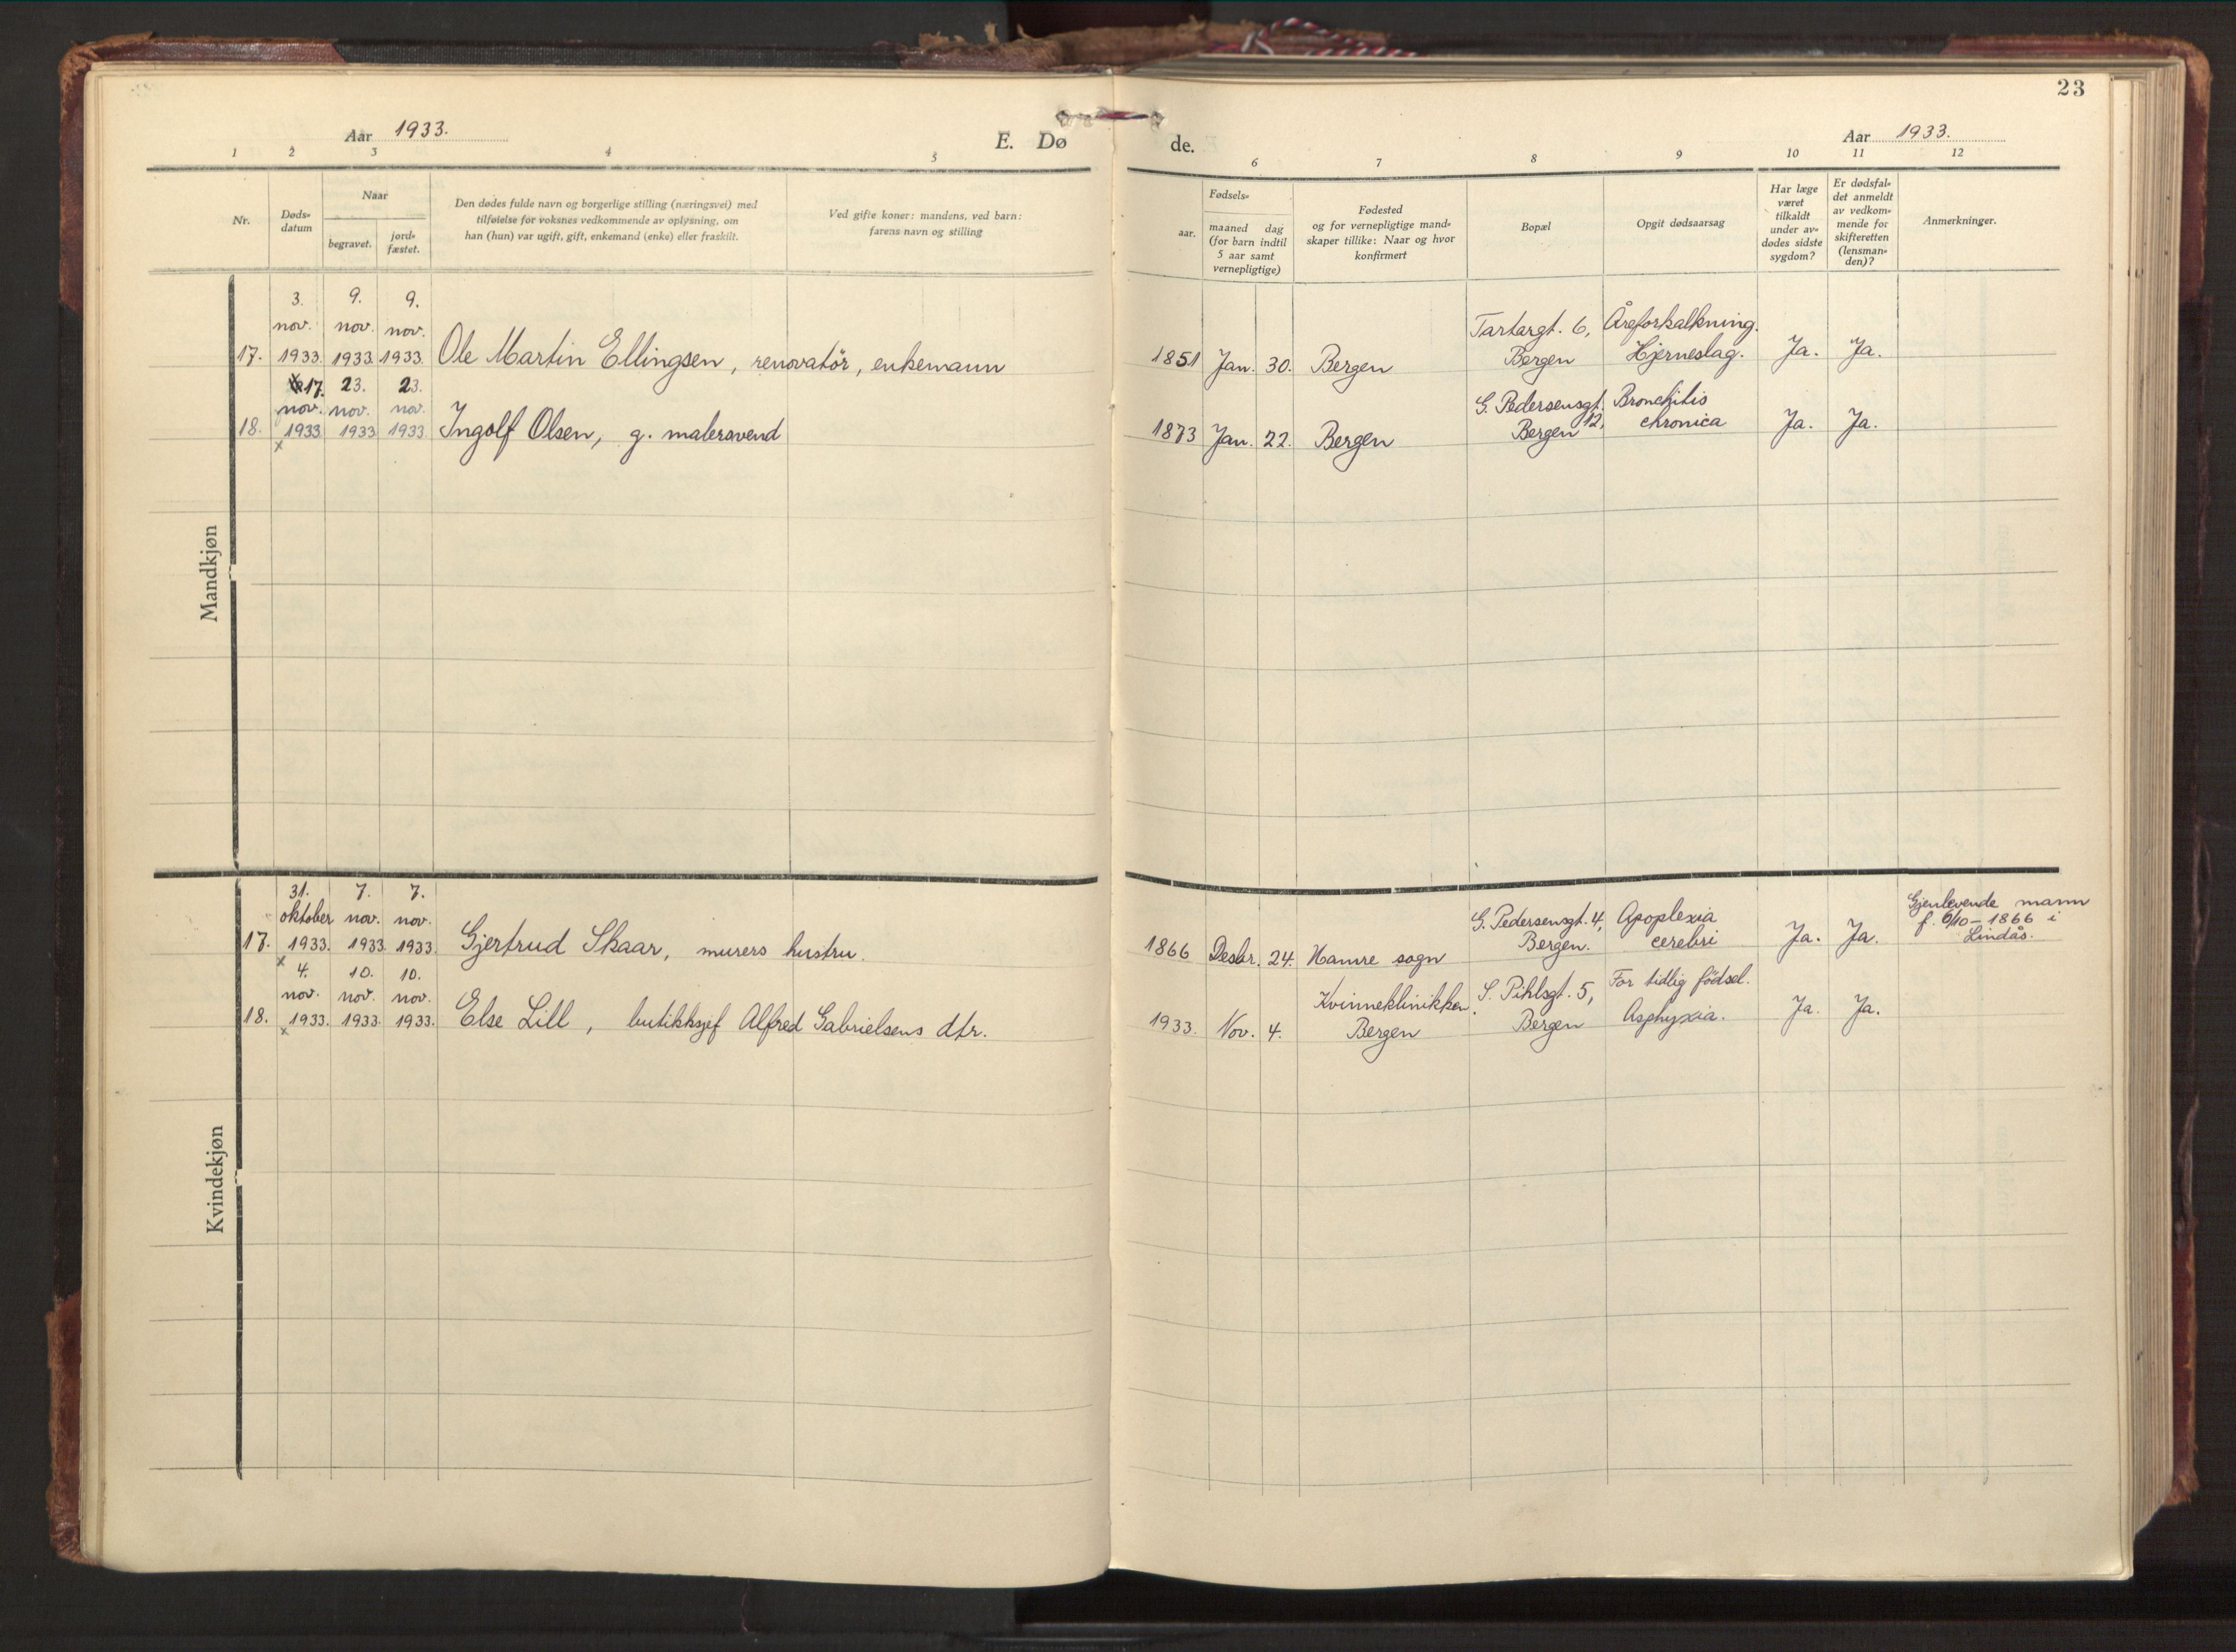 23
Aar 1933.
E. Dø
de.
Aar 1933.
1 2 3 4 5
6 7 8 9 10 11 12
Nr.
Døds-
datum
Naar
begravet.
jord-
fæstet.
Den dødes fulde navn og borgerlige stilling (næringsvei) med
tilføielse for voksnes vedkommende av oplysning, om
han (hun) var ugift, gift, enkemand (enke) eller fraskilt.
Ved gifte koner: mandens, ved barn:
farens navn og stilling
Fødsels-
aar.
maaned dag
(for barn indtil
5 aar samt
vernepligtige)
Fødested
og for vernepligtige mand-
skaper tillike: Naar og hvor
konfirmert
Bopæl
Opgit dødsaarsag
Har læge
været
tilkaldt
under av-
dødes sidste
sygdom?
Er dødsfal-
det anmeldt
av vedkom-
mende for
skifteretten
(lensman-
den)?
Anmerkninger.
Mandkjøn
3. 9. 9.
nov. nov. nov. Tartargt. 6, Åreforkalkning.
17. 1933. 1933. 1933. Ole Martin Ellingsen, renovatör, enkemann 1851 Jan. 30. Bergen Bergen Hjerneslag. Ja. Ja.
17. 23. 23.
nov. nov. nov. G. Pedersensgt. Bronchitis
18. 1933 1933 1933. Ingolf Olsen, g. malersvend 1873 Jan. 22. Bergen Bergen 12, chronica Ja. Ja.
x
Kvindekjøn
31. 7. 7. Gjenlevende mann
oktober nov. nov. G. Pedersensgt. 4, Apoplexia f. 6/10-1866 i
17. 1933. 1933. 1933. Gjertrud Skaar, murers hustru. 1866 Desbr. 24. Hamre sogn Bergen. cerebri Ja. Ja. Lindås.
x
4. 10. 10.
nov. nov. nov. Kvinneklinikken. S. Pihlsgt. 5, For tidlig födsel.
18. 1933. 1933. 1933. Else Lill, butikksjef Alfred Gabrielsens dtr. 1933. Nov. 4. Bergen Bergen Asphyxia. Ja. Ja.
x